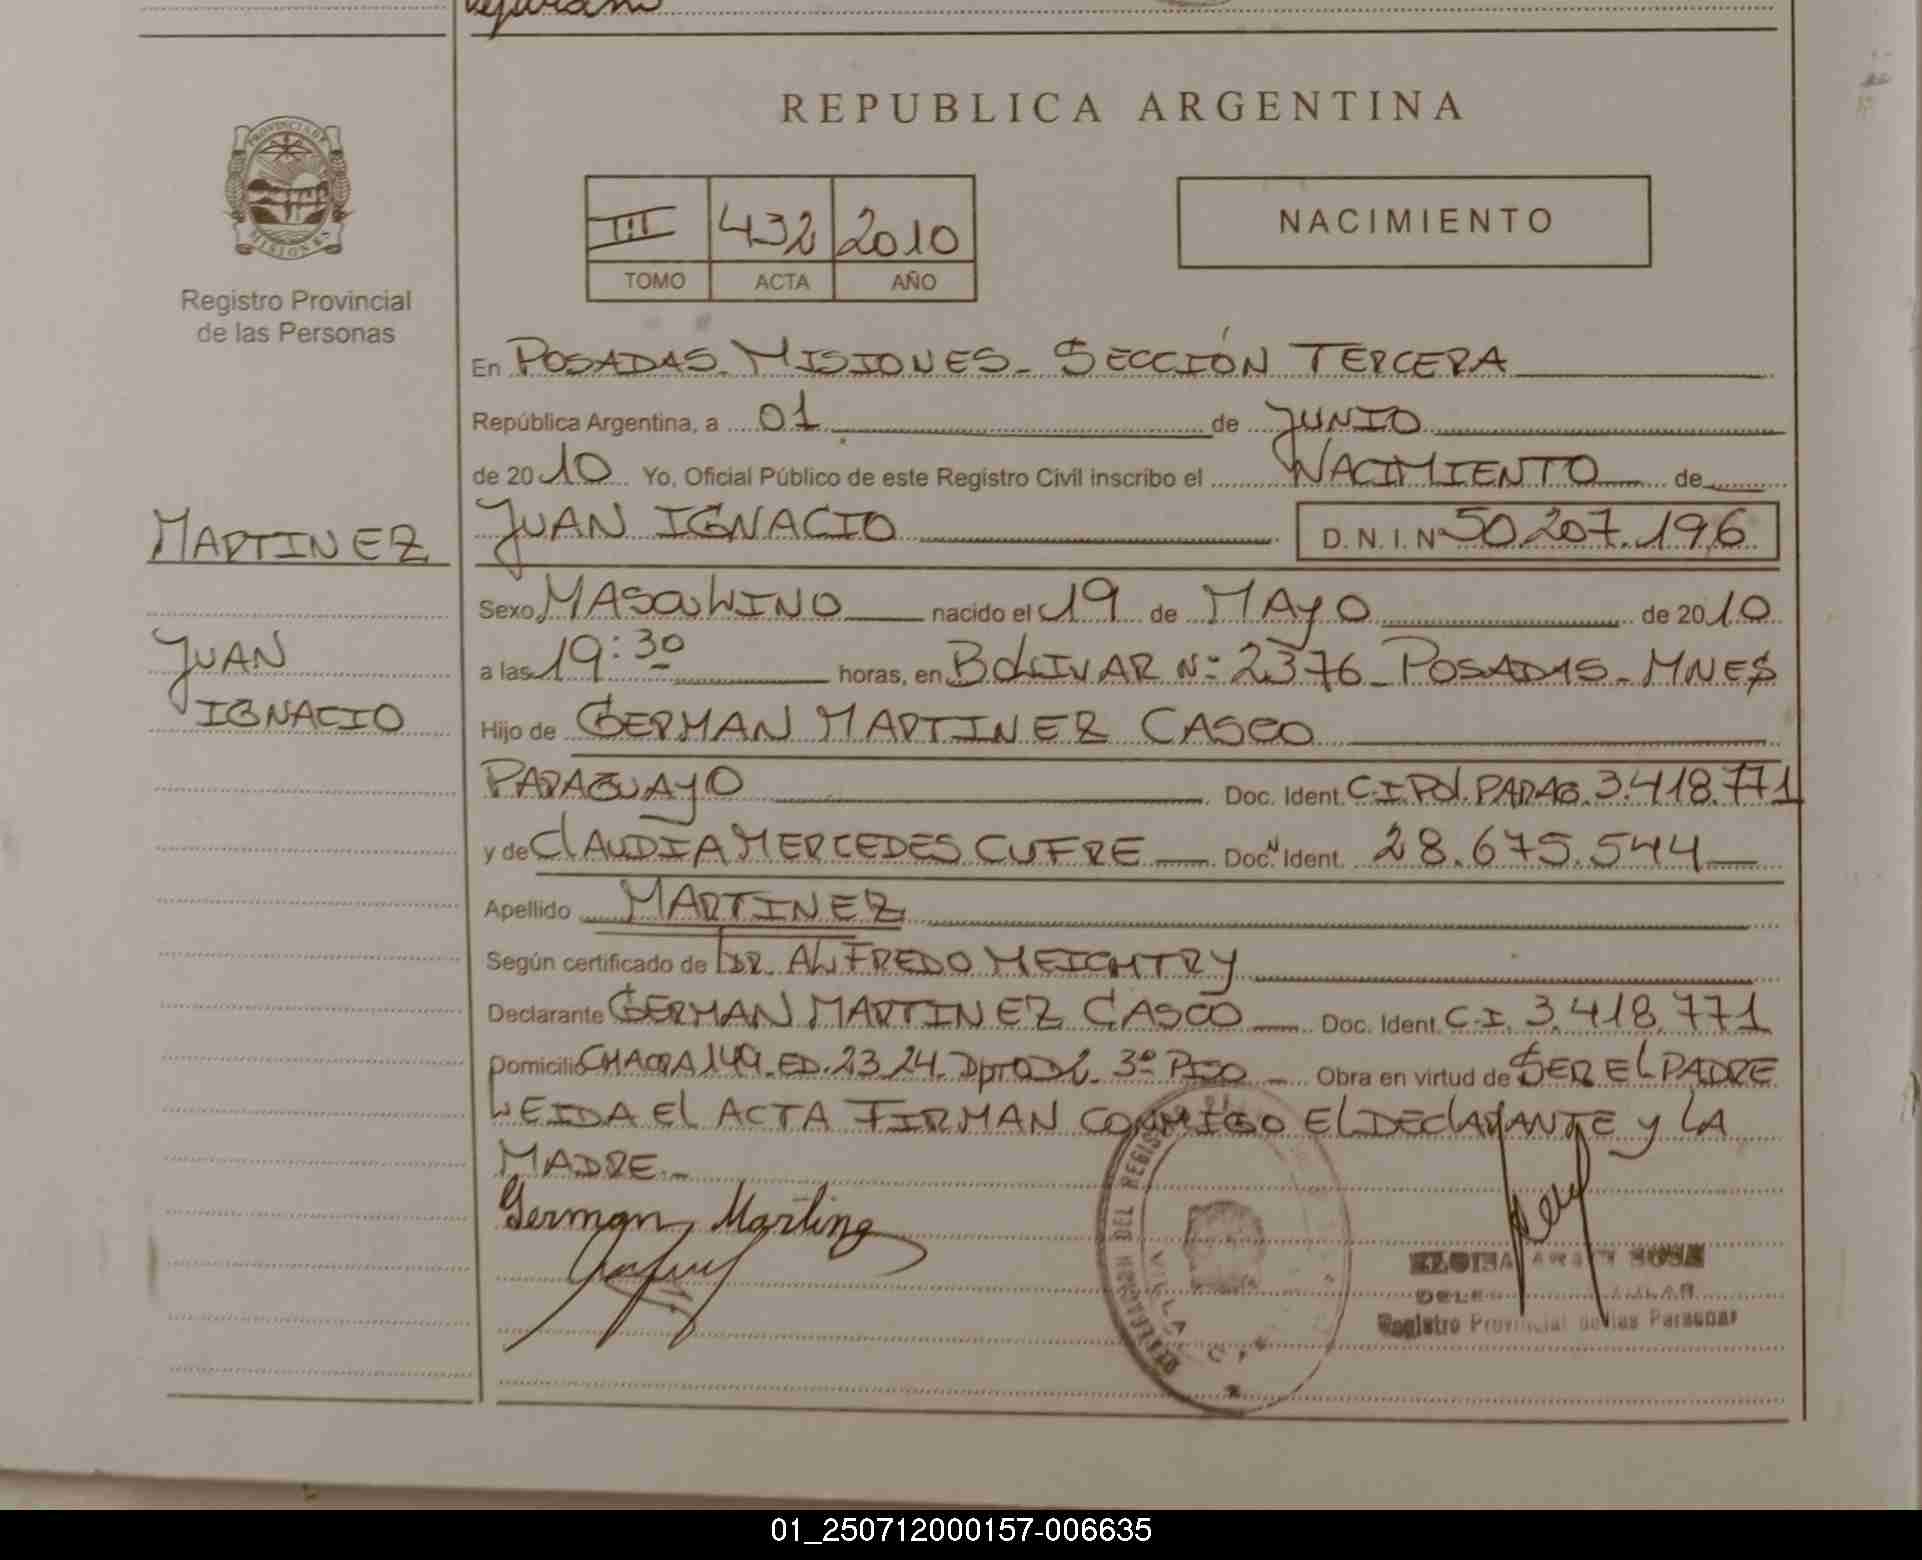 REPUBLICA ARGENTINA
PROVINCIA DE
MISIONES
Registro Provincial
de las Personas
III 432 2010
TOMO ACTA AÑO
NACIMIENTO
En POSADAS. MISIONES. SECCIÓN TERCERA
República Argentina, a 01 de JUNIO
de 2010 Yo, Oficial Público de este Registro Civil inscribo el NACIMIENTO de
MARTINEZ
JUAN
IGNACIO
JUAN IGNACIO D.N.I. Nº 50.207.196
Sexo MASCULINO nacido el 19 de MAYO de 2010
a las 19:30 horas, en BOLIVAR Nº 2376 - POSADAS - MNES
Hijo de GERMAN MARTINEZ CASCO
PARAGUAYO Doc. Ident. C.I. Pol. PARAG. 3.418.771
y de CLAUDIA MERCEDES CUFRE Doc. N Ident. 28.675.544
Apellido MARTINEZ
Según certificado de DR. ALFREDO MEICHTRY
Declarante GERMAN MARTINEZ CASCO Doc. Ident. C.I. 3.418.771
Domicilio CHACRA 149. ED. 23 24. Dpto D2. 3º PISO Obra en virtud de SER EL PADRE
LEIDA EL ACTA FIRMAN CONMIGO EL DECLARANTE Y LA
MADRE.-
German Martinez
DELEGACION DEL REGISTRO
VILLA
SOSA
Registro Provincial de las Personas
01_250712000157-006635